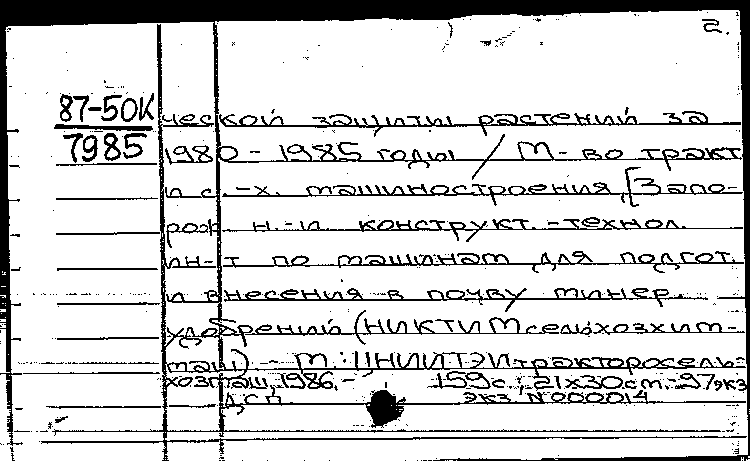 2.
87-50К
7985
ческой защиты растений за
1980-1985 годы / М-во тракт.
и с.-х. машиностроения, [Запо-
рож. н.-и. конструкт.-технол.
ин-т по машинам для подгот.
и внесения в почву минер.
удобрений (НИКТИМсельхозхим-
маш) - М.: ЦНИИТЭИтракторосель-
хозмаш, 1986. - 159 с.; 21х30 см. - 97 экз
ДСП экз N 000014